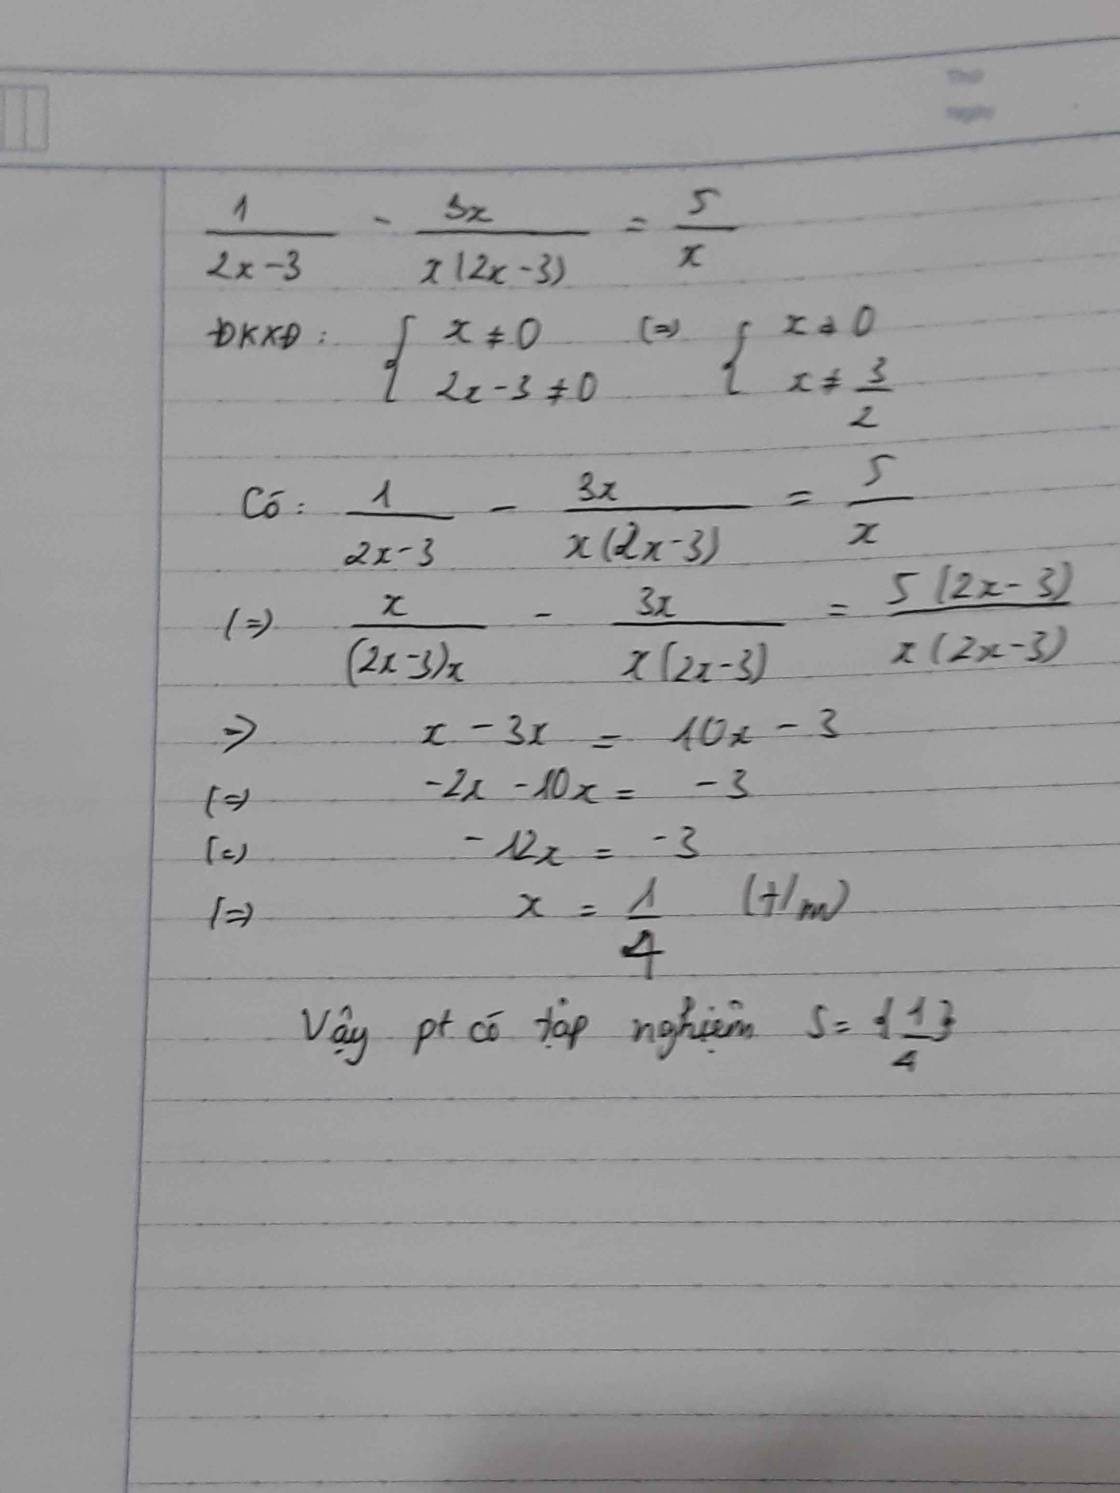 Thứ
Ngày
1/(2x-3) - 3x/(x(2x-3)) = 5/x
ĐKXĐ: { x ≠ 0 (=) { x ≠ 0
2x-3 ≠ 0 x ≠ 3/2
Có: 1/(2x-3) - 3x/(x(2x-3)) = 5/x
(=) x/((2x-3)x) - 3x/(x(2x-3)) = 5(2x-3)/(x(2x-3))
=> x - 3x = 10x - 3
(=) -2x - 10x = -3
(=) -12x = -3
(=) x = 1/4 (t/m)
Vậy pt có tập nghiệm S = {1/4}